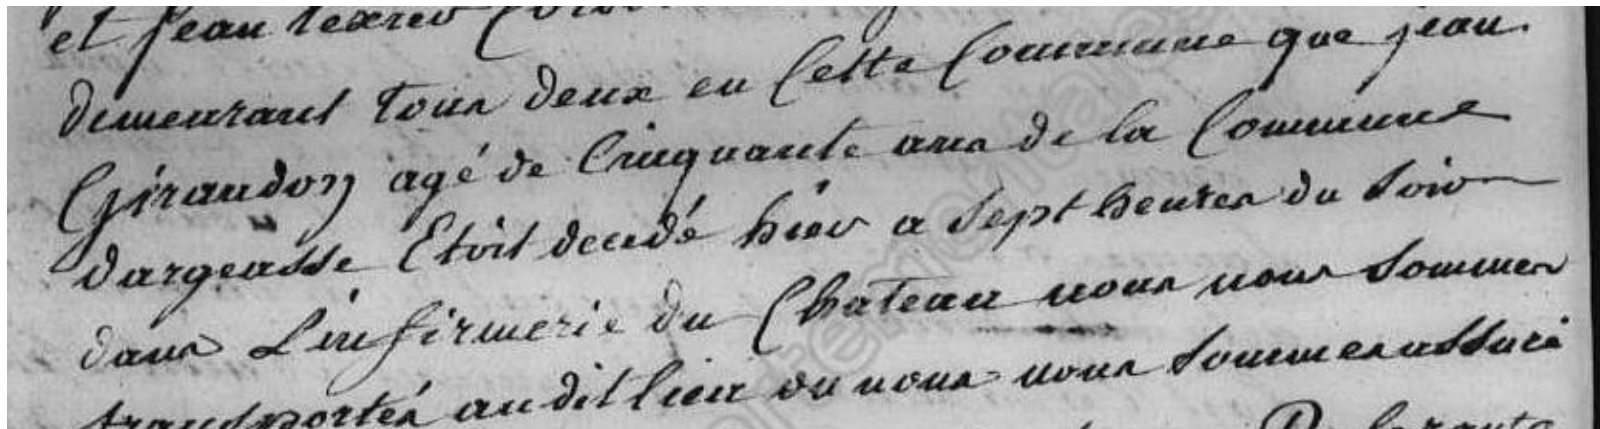 et jean
demeurant tous deux en Cette Commune que jean
Giraudon agé de Cinquante ans de la Commune
dargeasse Etoit decedé hier a Sept heures du Soir
dans L'infirmerie du Chateau nous nous Sommes
transportés audit lieu ou nous nous Sommes assuré